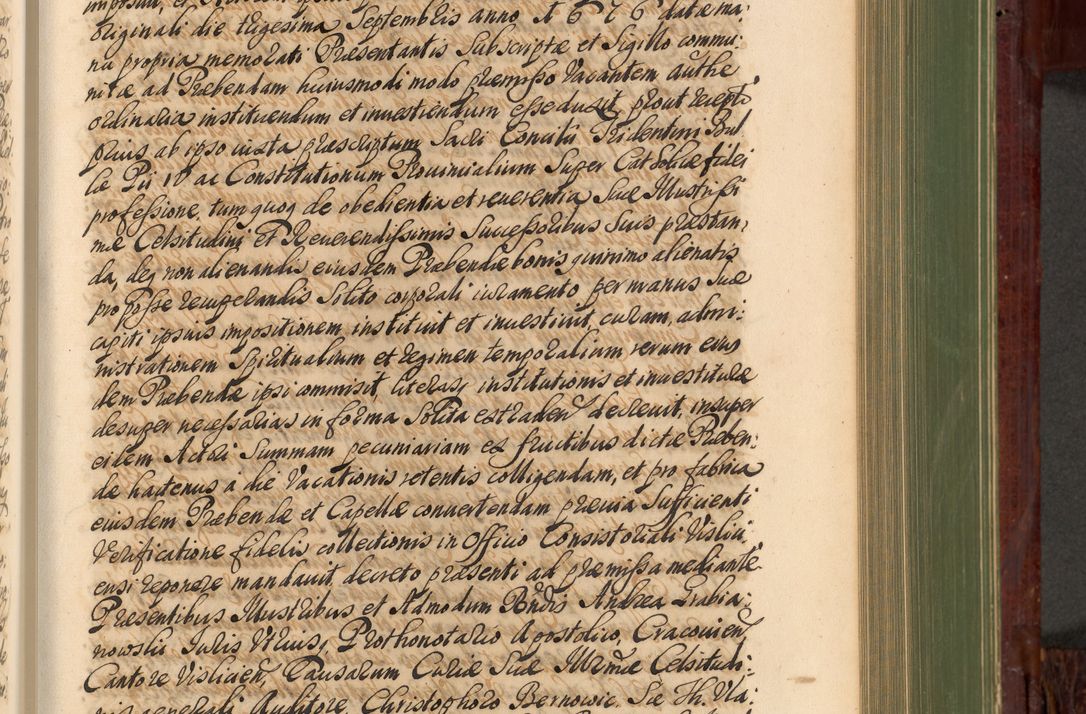 originali die trigesima Septembris anno 1676 datæ ma:
nu propria memorati Præsentantis Subscriptæ et Sigillo commu:
nitæ ad Præbendam huiusmodi modo præmisso Vacantem authe
ordinaria instituendum et investiendum esse duxit, prout recepto
prius ab ipso iuxta præscriptum Sacri Concilii Tridentini Bul
læ Pii IV ac Constitutionum Provincialium Super Catholicæ fidei
professione, tum quoq de obedientia et reverentia Suæ Illustrissi
mæ Celsitudini et Reverendissimis Successoribus Suis præstan,
da, deq non alienandis eiusdem Præbendæ bonis quinimo alienatis
pro posse recuperandis Solito corporali iuramento per manus Suæ
capiti ipsius impositionem, instituit et investiuit, curam, admi:
nistrationem Spiritualium et regimen temporalium rerum eius
dem Præbendæ ipsi commisit, literas, institutionis et investituræ
desuper necessarias in forma Solita extraden decreuit, insuper
eidem Actori Summam pecuniariam ex fructibus dictæ Præben:
dæ hactenus a die Vacationis retentis colligendam, et pro fabrica
eiusdem Præbendæ et Capellæ convertendam prævia Sufficienti
Verificatione fidelis collectionis in Officio Consistoriali Vislici,
ensi reponere mandauit, decreto præsenti ad præmissa mediante
Præsentibus Illustribus et Admodum Rndis Andrea Grabia:
nowski Iuris Vtrius, Prothonotario Apostolico, Cracouien,
Cantore Vislicien, Causarum Curiæ Suæ Illrmæ Celsitudi:
nis generali Auditore, Christophoro Bernowic, Sæ Th. Vla: